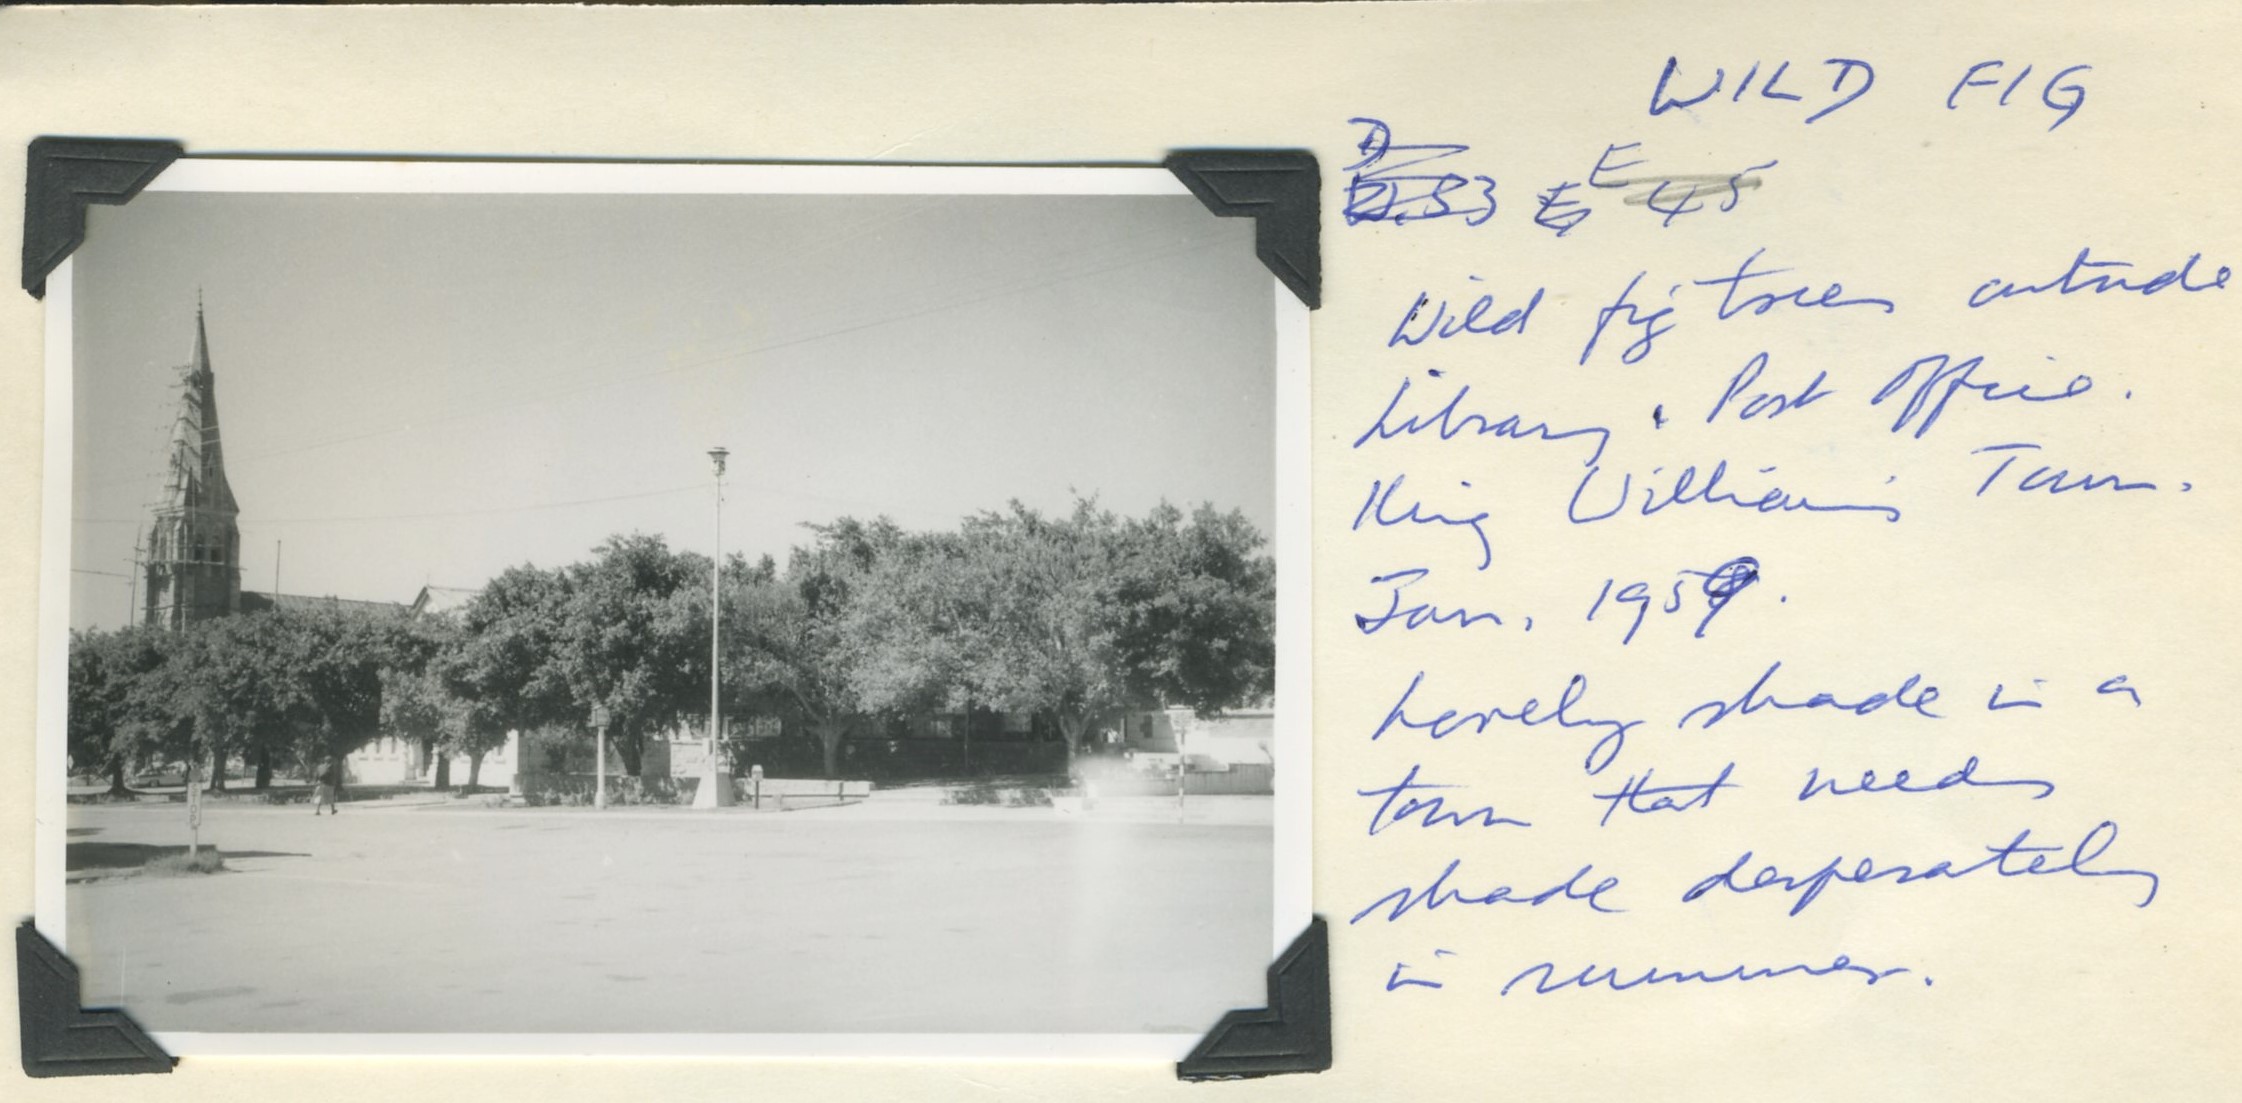 WILD FIG
D
E 45
Wild fig trees outside
Library, Post Office.
King William's Town.
Jan. 1959.
Lovely shade in a
town that needs
shade desperately
in summer.